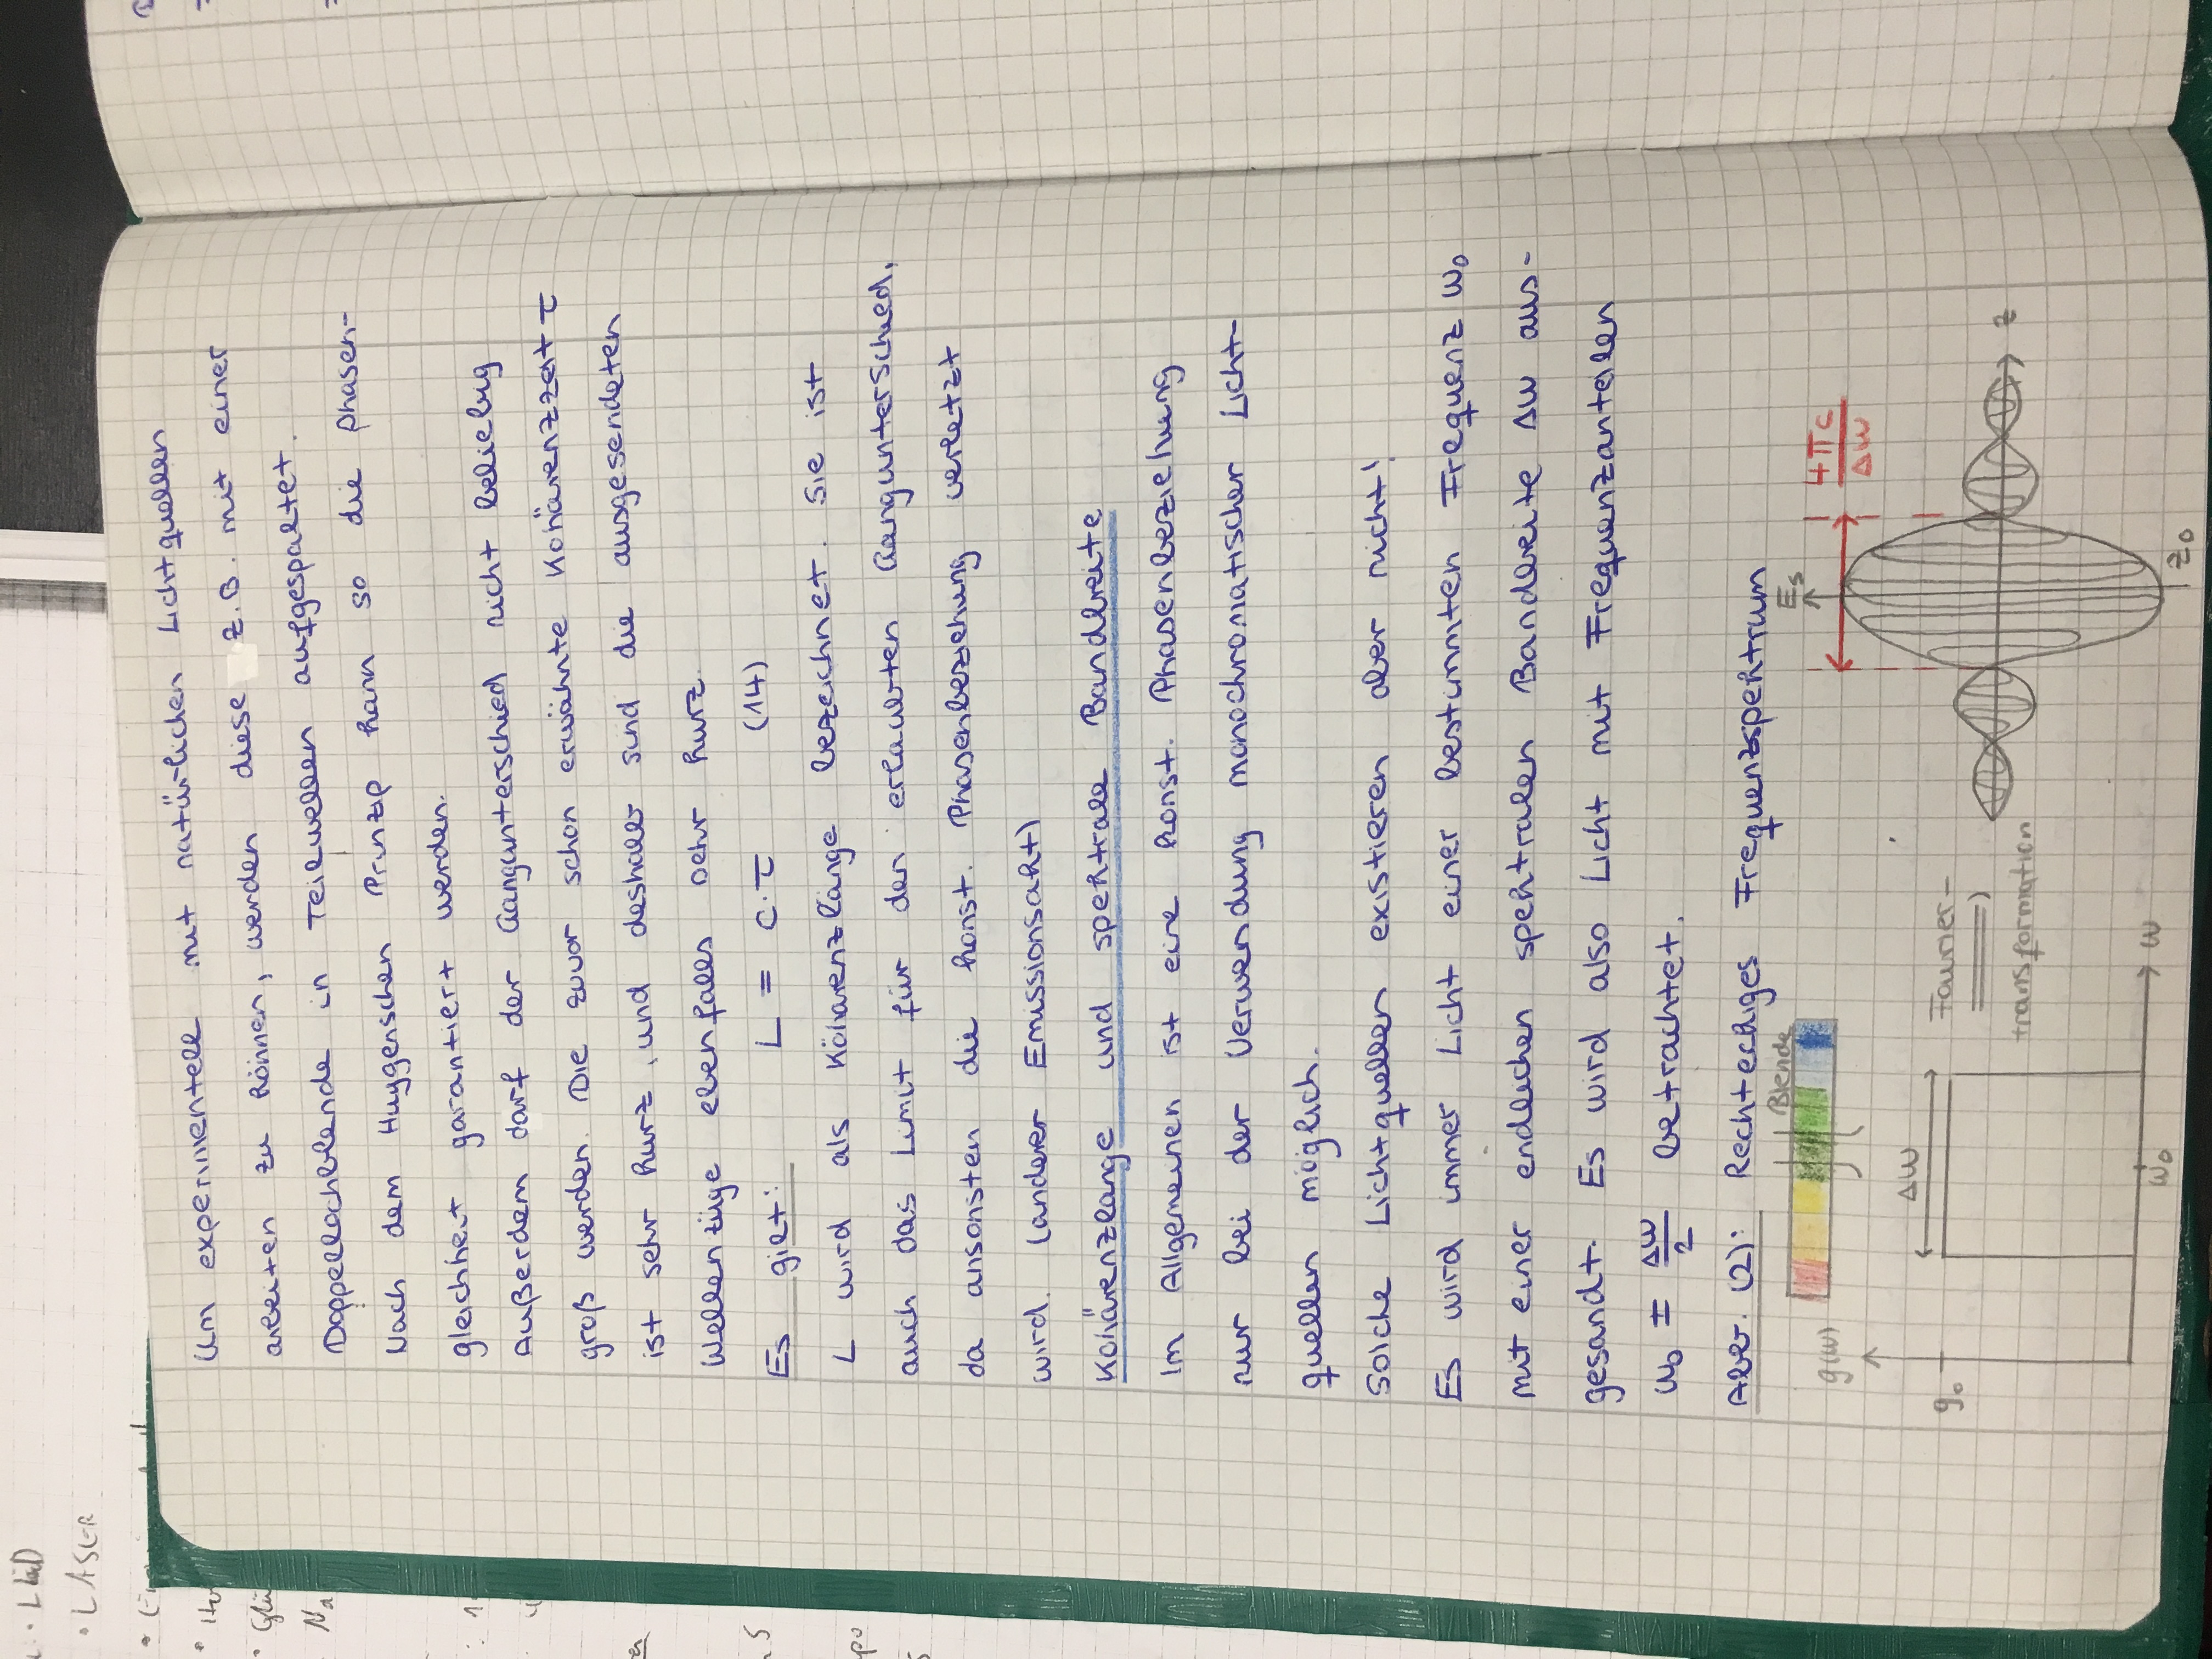 • LED
• LASER
Um experimentell mit natürlichen Lichtquellen
arbeiten zu können, werden diese z.B. mit einer
Doppellochblende in Teilwellen aufgespaltet.
Nach dem Huygenschen Prinzip kann so die Phasen-
gleichheit garantiert werden.
Außerdem darf der Gangunterschied nicht beliebig
groß werden. Die zuvor schon erwähnte Kohärenzzeit τ
ist sehr kurz, und deshalb sind die ausgesendeten
Wellenzüge ebenfalls sehr kurz.
Es gilt: L = c·τ (14)
L wird als Köharenzlänge bezeichnet. Sie ist
auch das Limit für den erlaubten Gangunterschied,
da ansonsten die konst. Phasenbeziehung verletzt
wird. (anderer Emissionsakt)
Kohärenzlänge und spektrale Bandbreite
Im Allgemeinen ist eine konst. Phasenbeziehung
nur bei der Verwendung monochromatischer Licht-
quellen möglich.
Solche Lichtquellen existieren aber nicht!
Es wird immer Licht einer bestimmten Frequenz ω₀
mit einer endlichen spektralen Bandbreite Δω aus-
gesandt. Es wird also Licht mit Frequenzanteilen
ω₀ ± Δω/2 betrachtet.
Abb. (2): Rechteckiges Frequenzspektrum
Blende
g(ω)
Δω
g₀
ω₀
ω
Fourier-
transformation
E_s
4πc/Δω
z
z₀